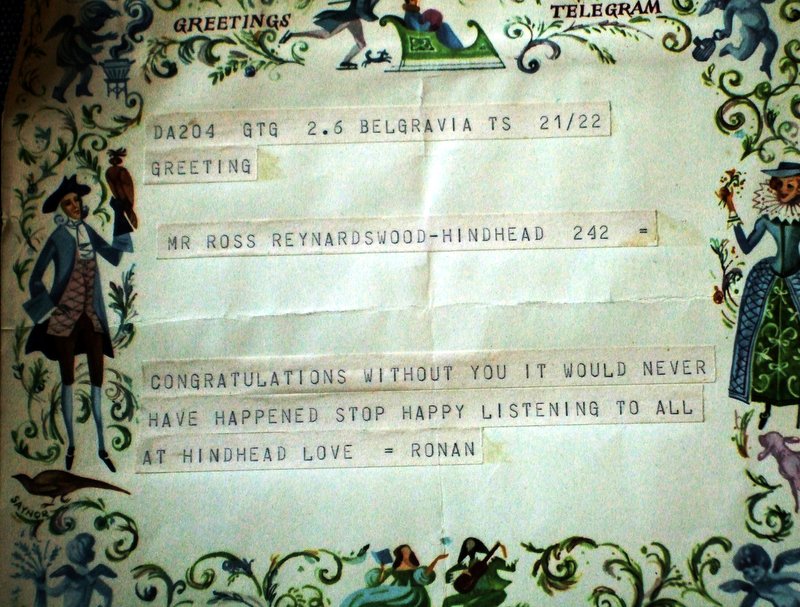 GREETINGS TELEGRAM
DA204 GTG 2.6 BELGRAVIA TS 21/22
GREETING
MR ROSS REYNARDSWOOD-HINDHEAD 242 =
CONGRATULATIONS WITHOUT YOU IT WOULD NEVER
HAVE HAPPENED STOP HAPPY LISTENING TO ALL
AT HINDHEAD LOVE = RONAN
SAYNOR